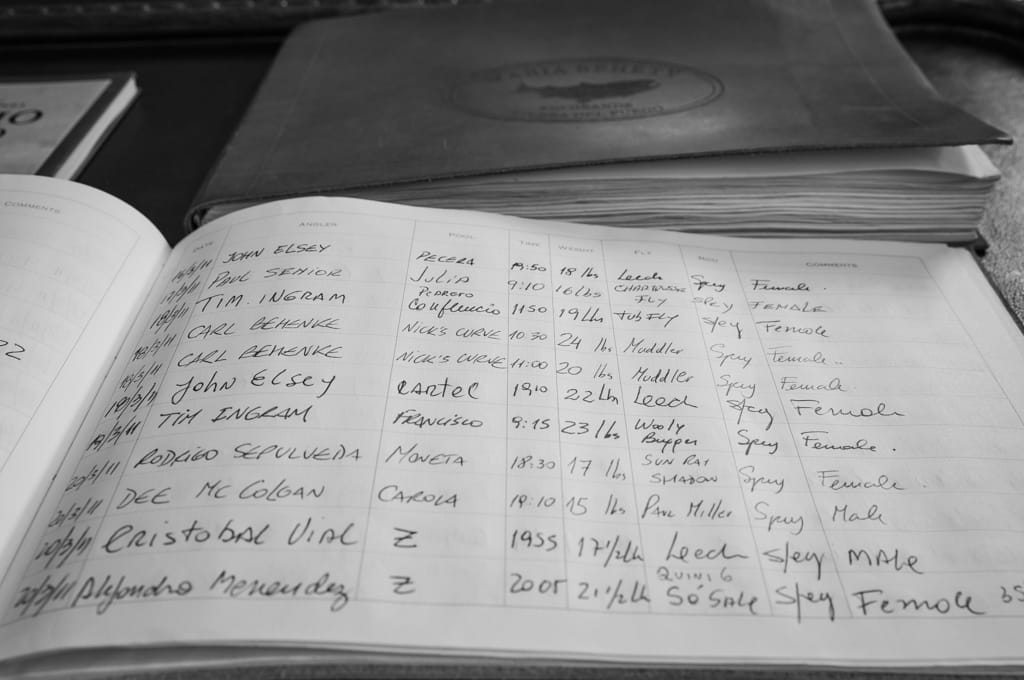 MARIA BEHETY
RIO GRANDE
TIERRA DEL FUEGO
COMMENTS
DATE ANGLER POOL TIME WEIGHT FLY ROD COMMENTS
JOHN ELSEY PECERA 19:50 18 lbs Leech Spey Female.
PAUL SENIOR JULIA 9:10 16 lbs CHARTREUSE FLY SPEY FEMALE
TIM. INGRAM PEDRERO Confluencio 1150 19 Lbs TUB FLY Spey Female
18/3/11 CARL BEHENKE NICK'S CURVE 10:30 24 lbs Muddler Spey Female..
CARL BEHENKE NICK'S CURVE 11:00 20 lbs Muddler Spey Female.
John Elsey CARTEL 1910 22 Lbs Leech Spey Female
19/3/11 TIM INGRAM FRANCISCO 9:15 23 lbs Wooly Bugger Spey Female.
20/3/11 RODRIGO SEPULVEDA MONETA 18:30 17 lbs SUN RAY SHADOW Spey Female.
20/3/11 DEE MC COLGAN CAROLA 19:10 15 lbs Paul Miller Spey Male
20/3/11 Cristobal Vial Z 1955 17 1/2 Lb Leech Spey MALE
20/3/11 Alejandro Menendez Z 2005 21 1/2 Lb QUINI 6 Só SALE Spey Female
22